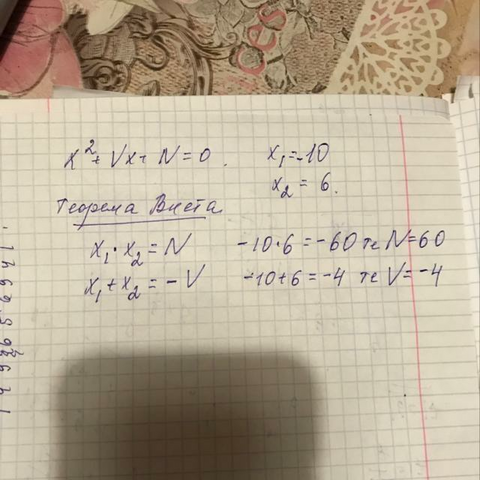 x² + Vx + N = 0. x₁ = -10
x₂ = 6.
Теорема Виета
x₁ · x₂ = N -10·6 = -60 те N = 60
x₁ + x₂ = -V -10+6 = -4 те V = -4